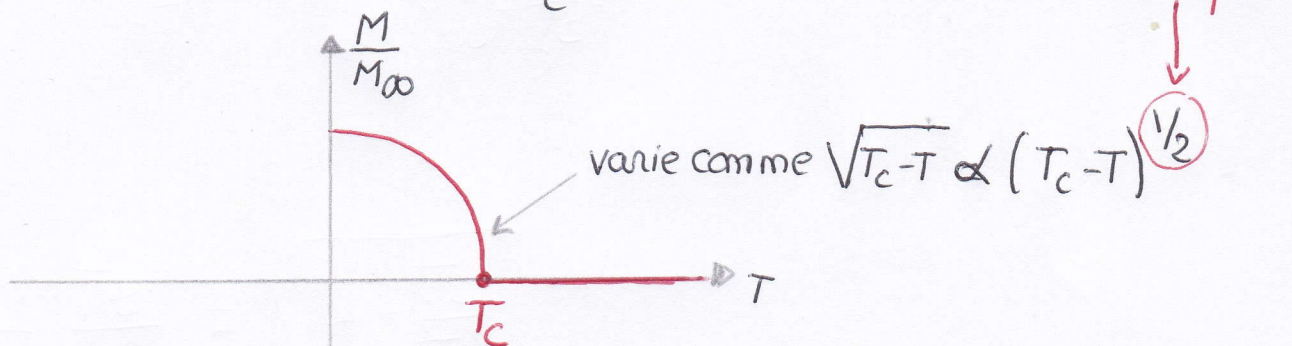 M
M∞
varie comme √Tc-T ∝ (Tc-T)^1/2
T
Tc